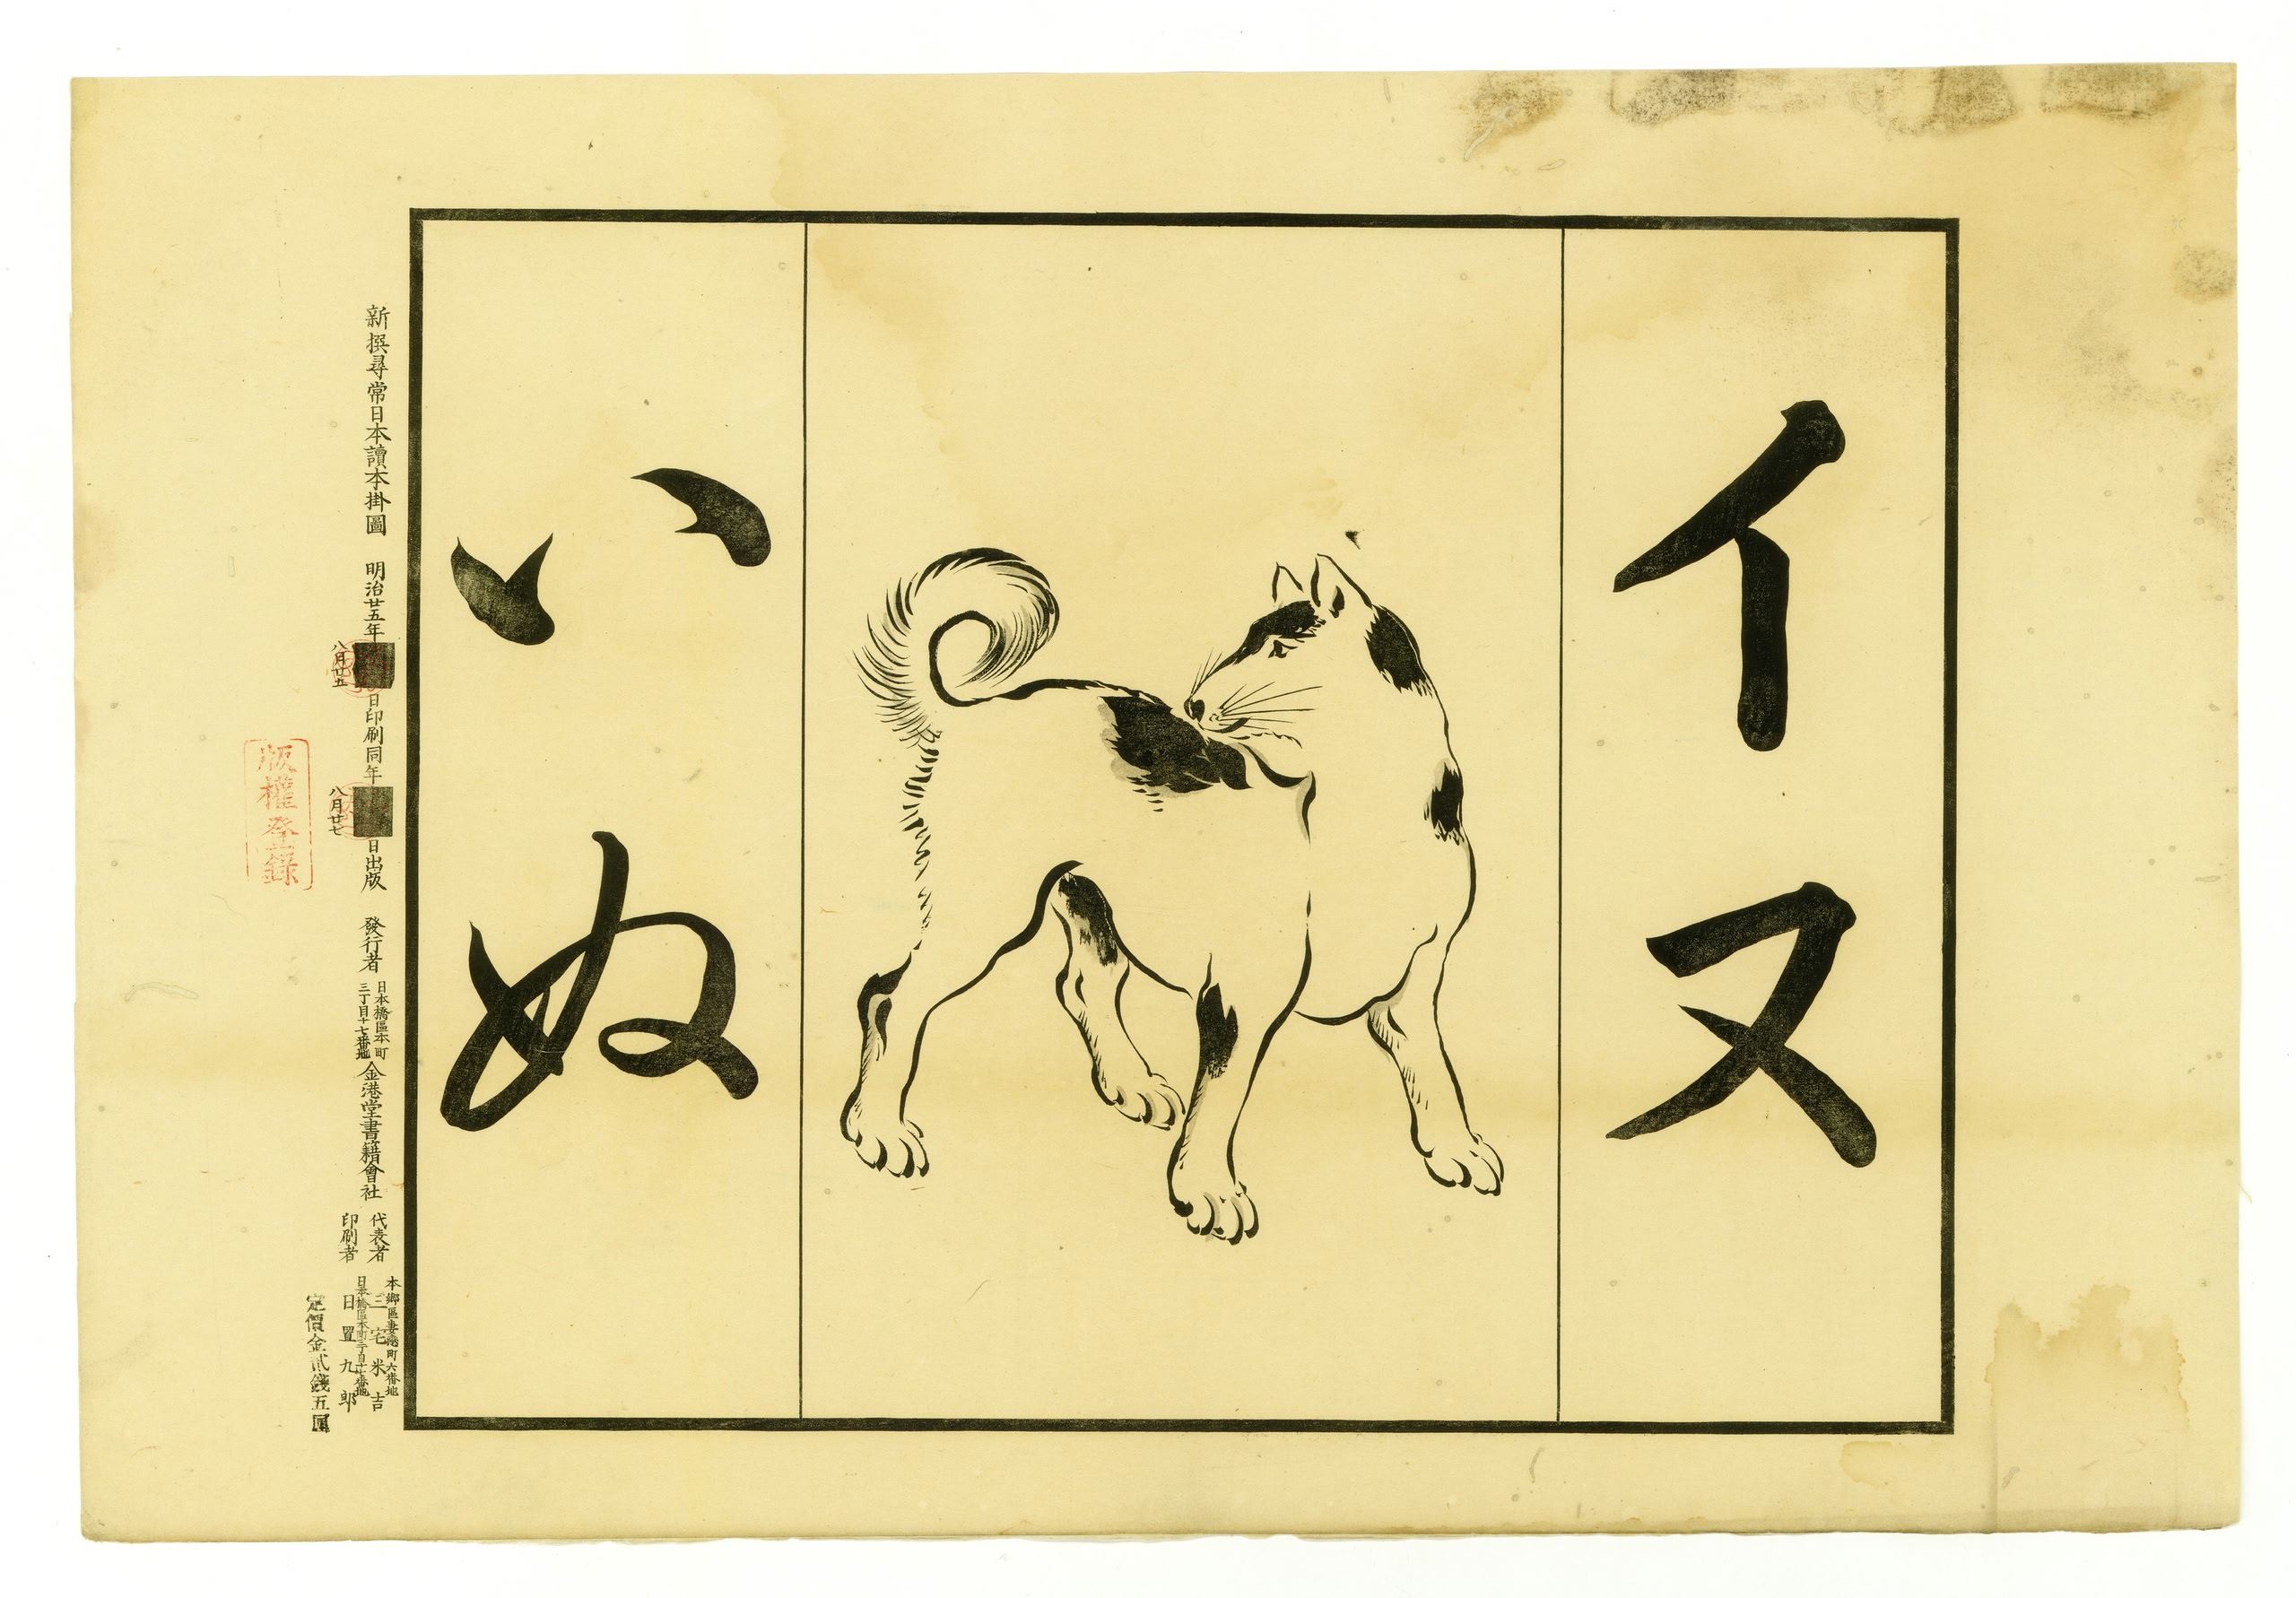 イヌ
いぬ
新撰尋常日本讀本掛圖
明治廿五年
八月廿五
日印刷同年
八月廿七
日出版
發行者
日本橋區本町
三丁目十七番地
金港堂書籍會社
代表者
本郷區妻戀町六番地
三宅米吉
印刷者
日本橋區本町三丁目十七番地
日置九郎
定價金貳錢五厘
版權登録